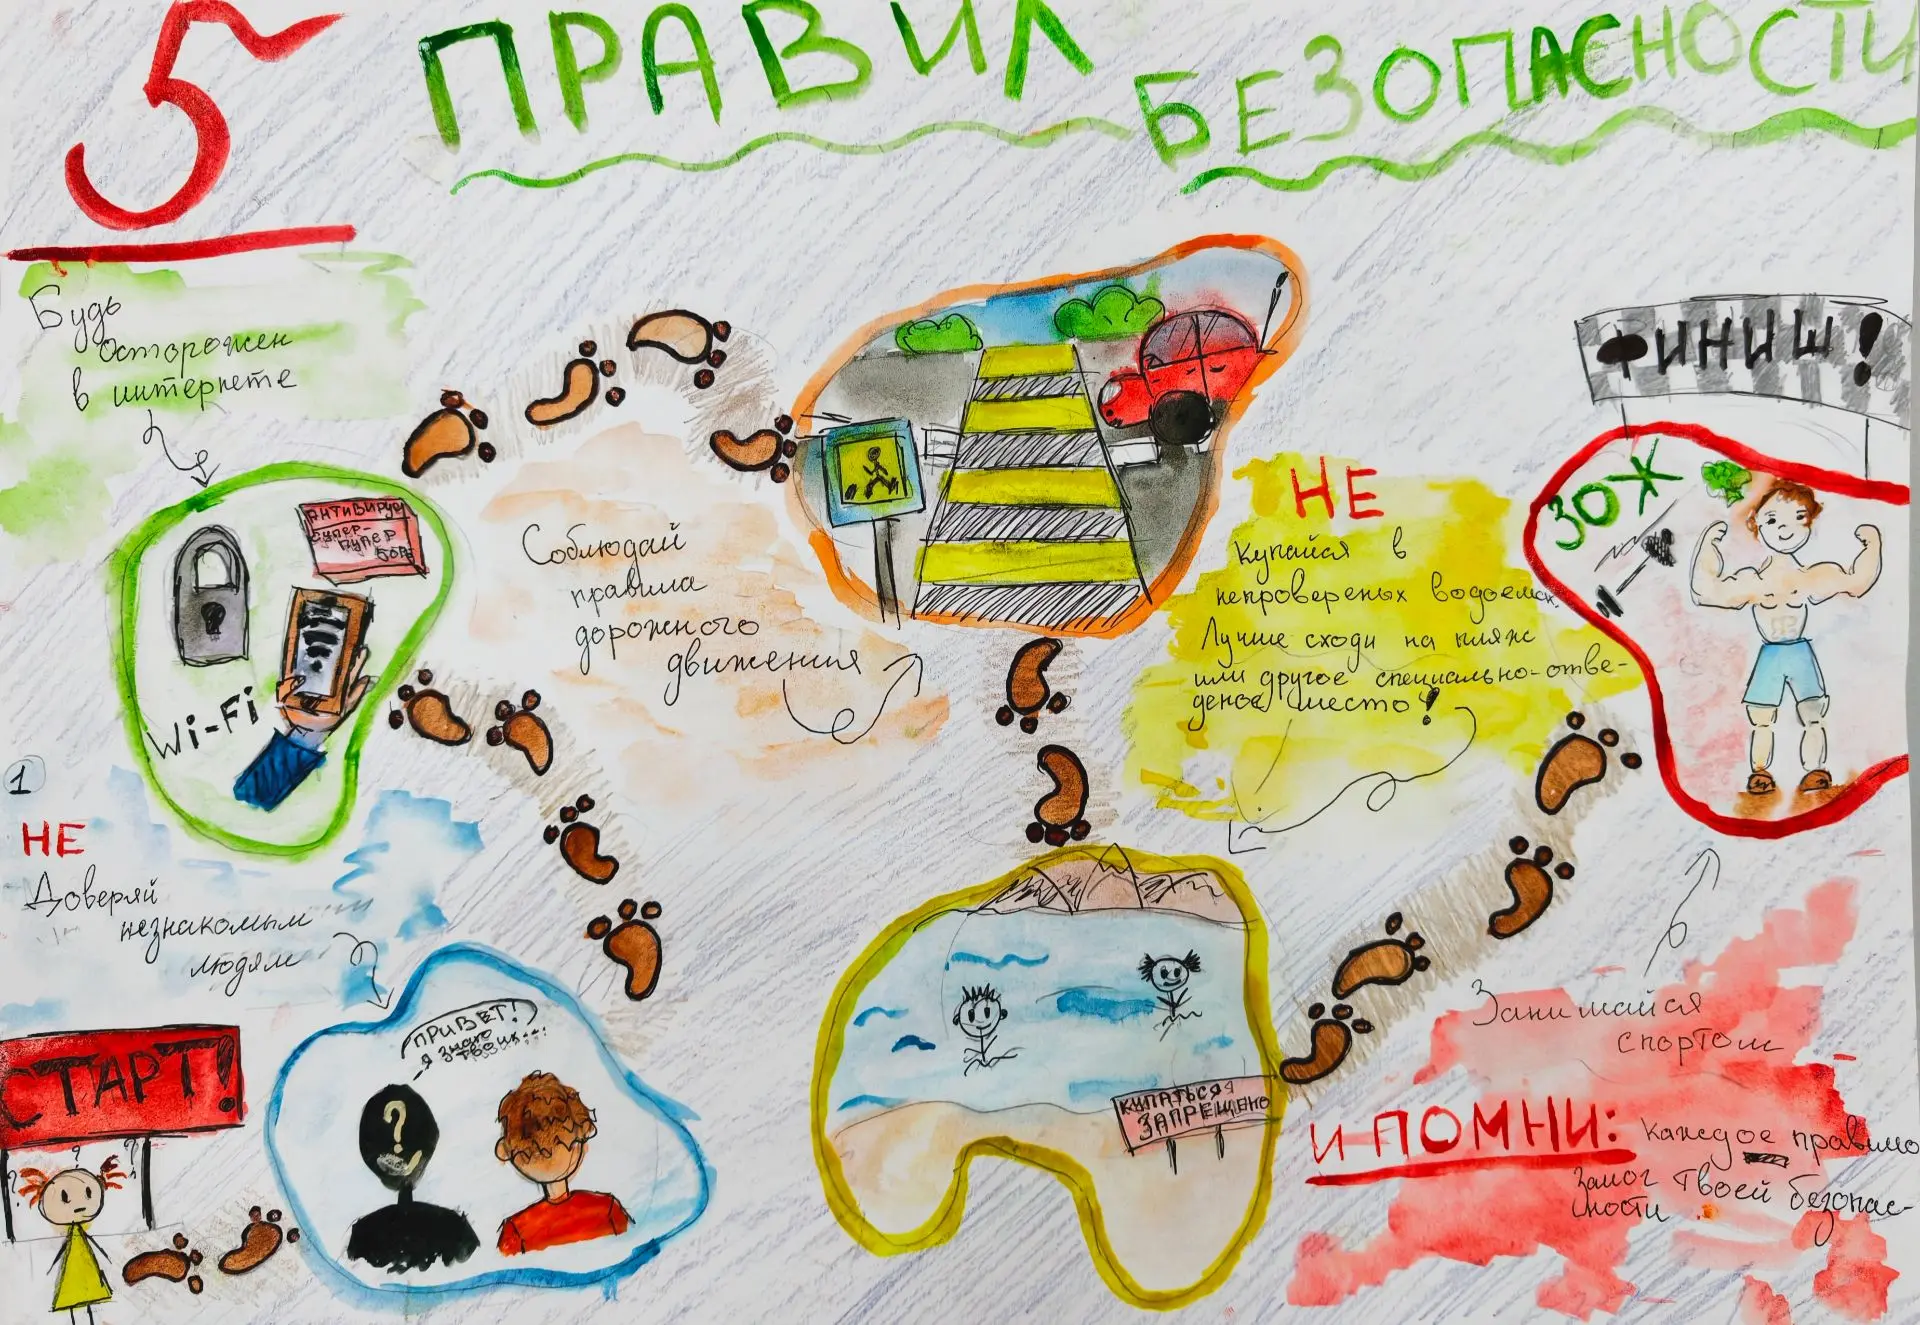 5 ПРАВИЛ
БЕЗОПАСНОСТИ
Будь
осторожен
в интернете
АНТИВИРУС
СУПЕР-
ПУПЕР
Wi-Fi
1
НЕ
Доверяй
незнакомым
людям
СТАРТ!
ПРИВЕТ!
Я знаю
твоих...
Соблюдай
правила
дорожного
движения
НЕ
купайся в
непровереных водоемах.
Лучше сходи на пляж
или другое специально-отве-
деное место!
КУПАТЬСЯ
ЗАПРЕЩЕНО
ФИНИШ!
ЗОЖ
Занимайся
спортом
И ПОМНИ: каждое правило
залог твоей безопас-
ности